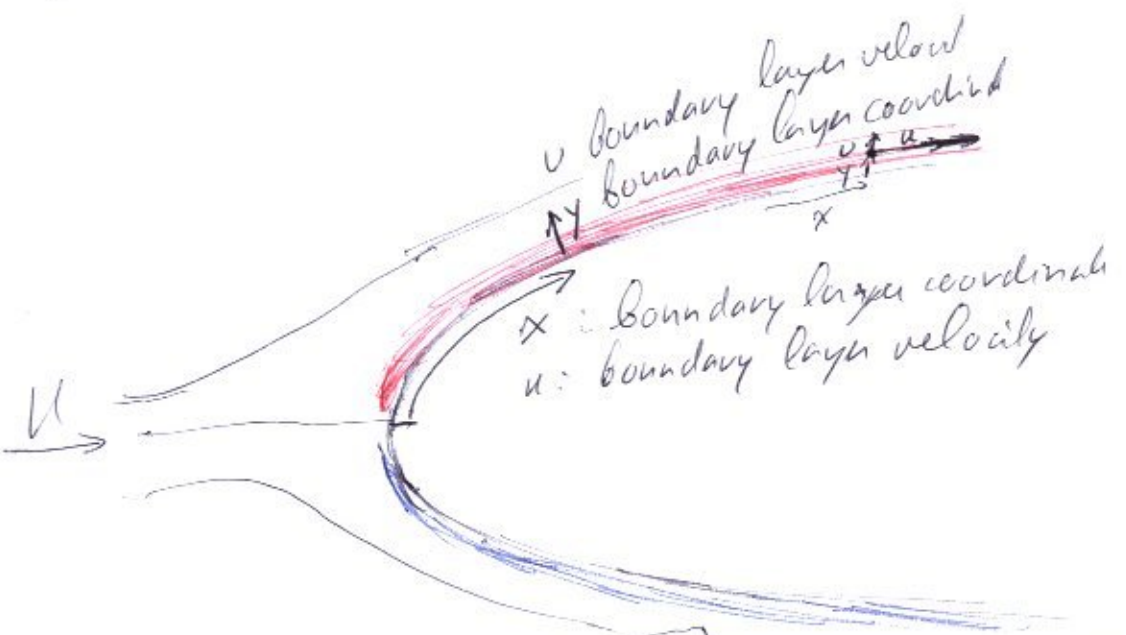 υ boundary layer veloci
y boundary layer coordinat
υ u
y
x
x : boundary layer coordinate
u : boundary layer velocity
U